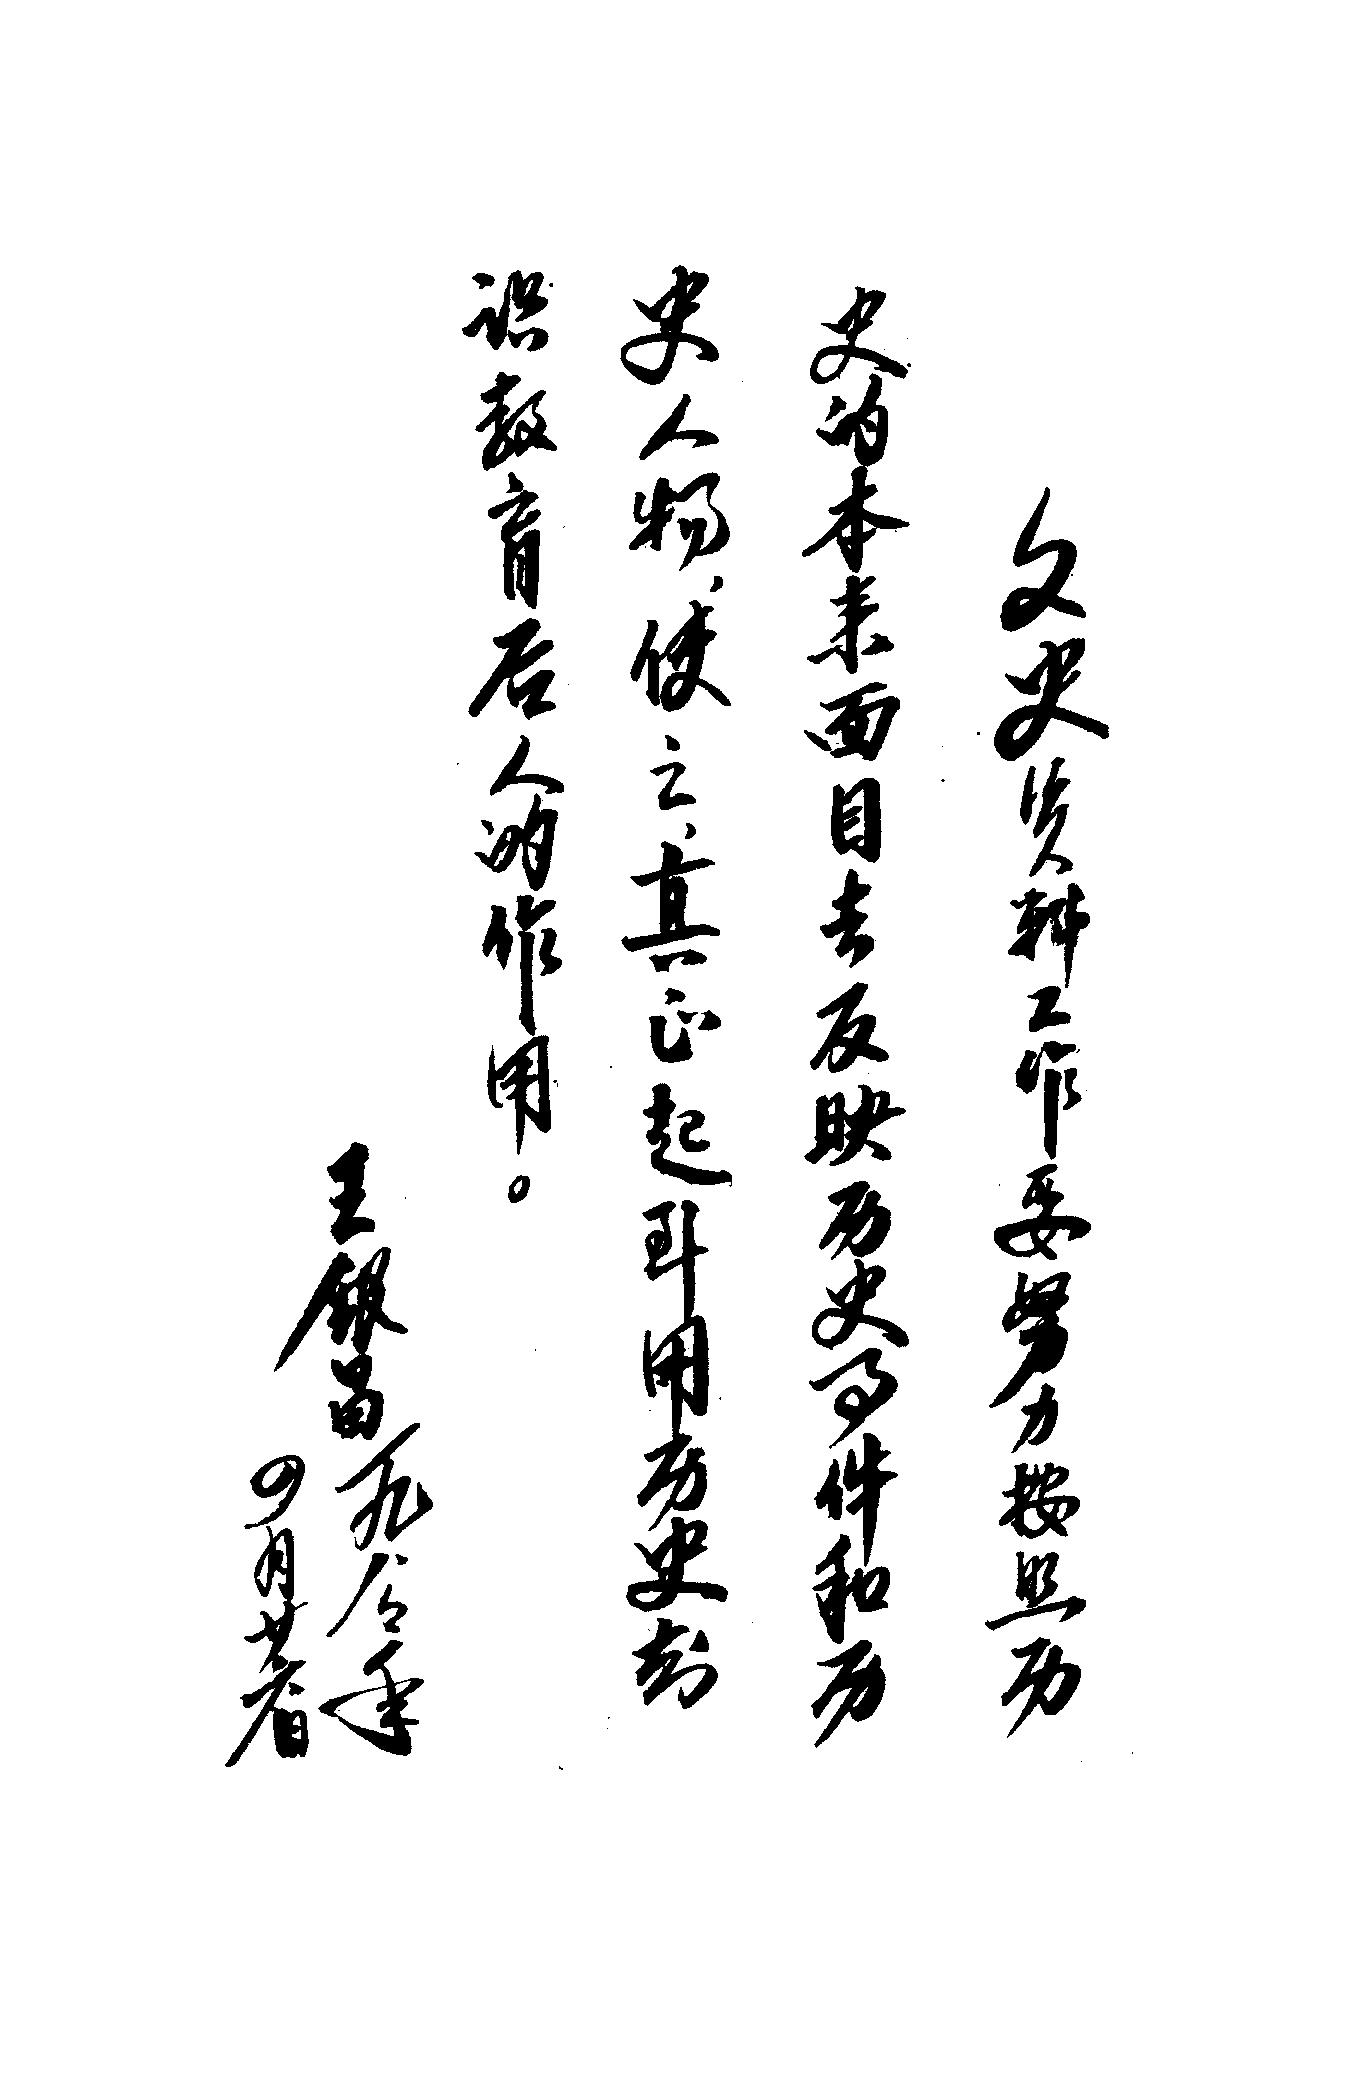 文史资料工作要努力按照历
史的本来面目去反映历史事件和历
史人物、使之、真正起到用历史知
识教育后人的作用。
王银昌
一九八年
四月廿日